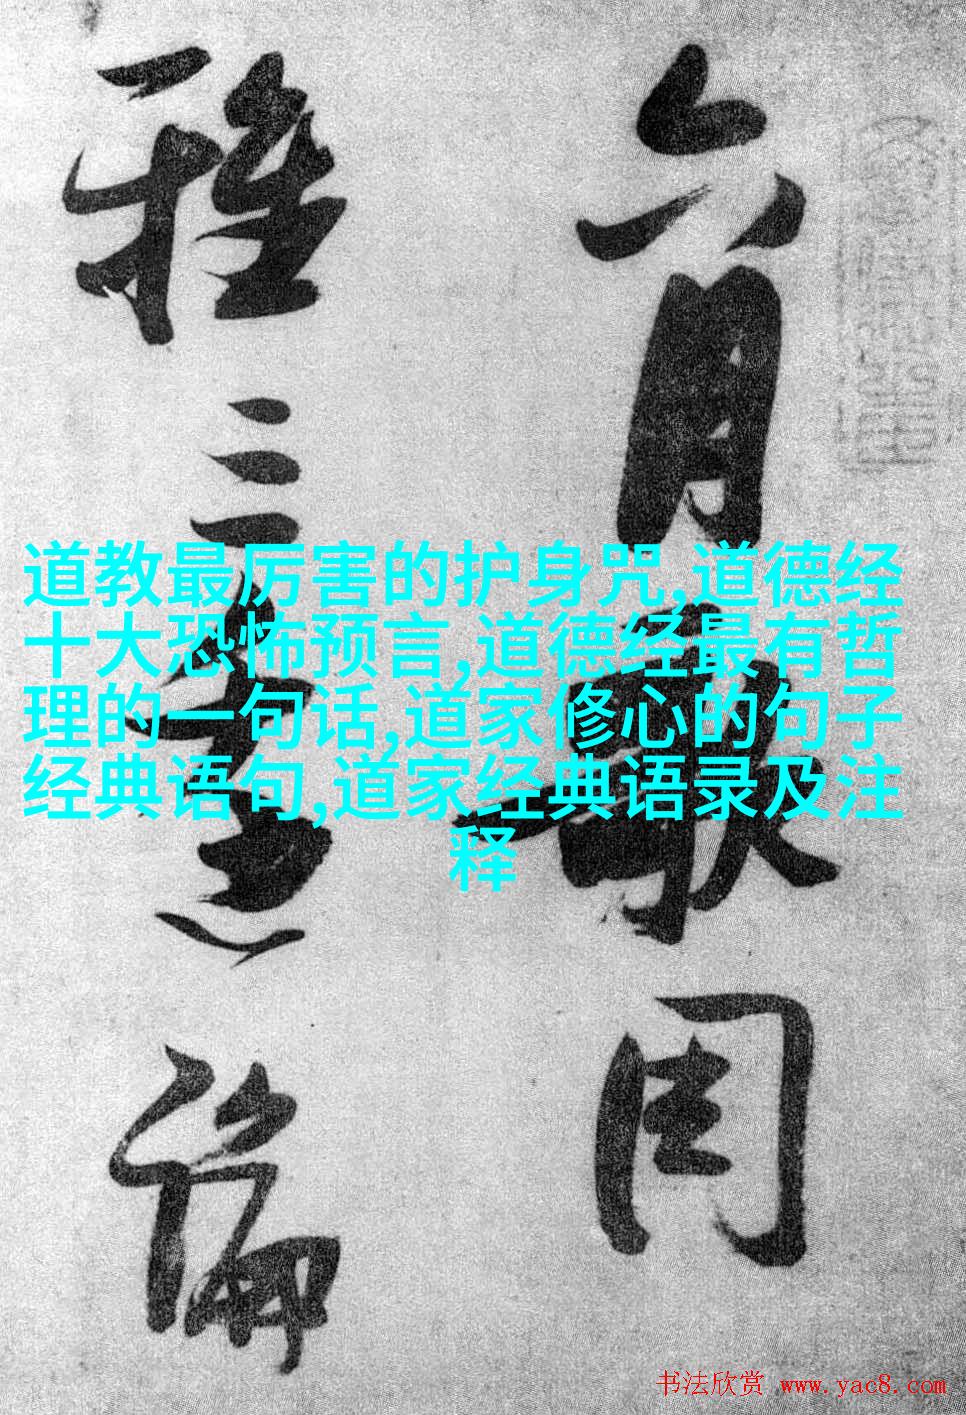 六月周
雅三論
道教最厉害的护身咒,道德经
十大恐怖预言,道德经最有哲
理的一句话,道家修心的句子
经典语句,道家经典语录及注
释
书法欣赏 www.yac8.com